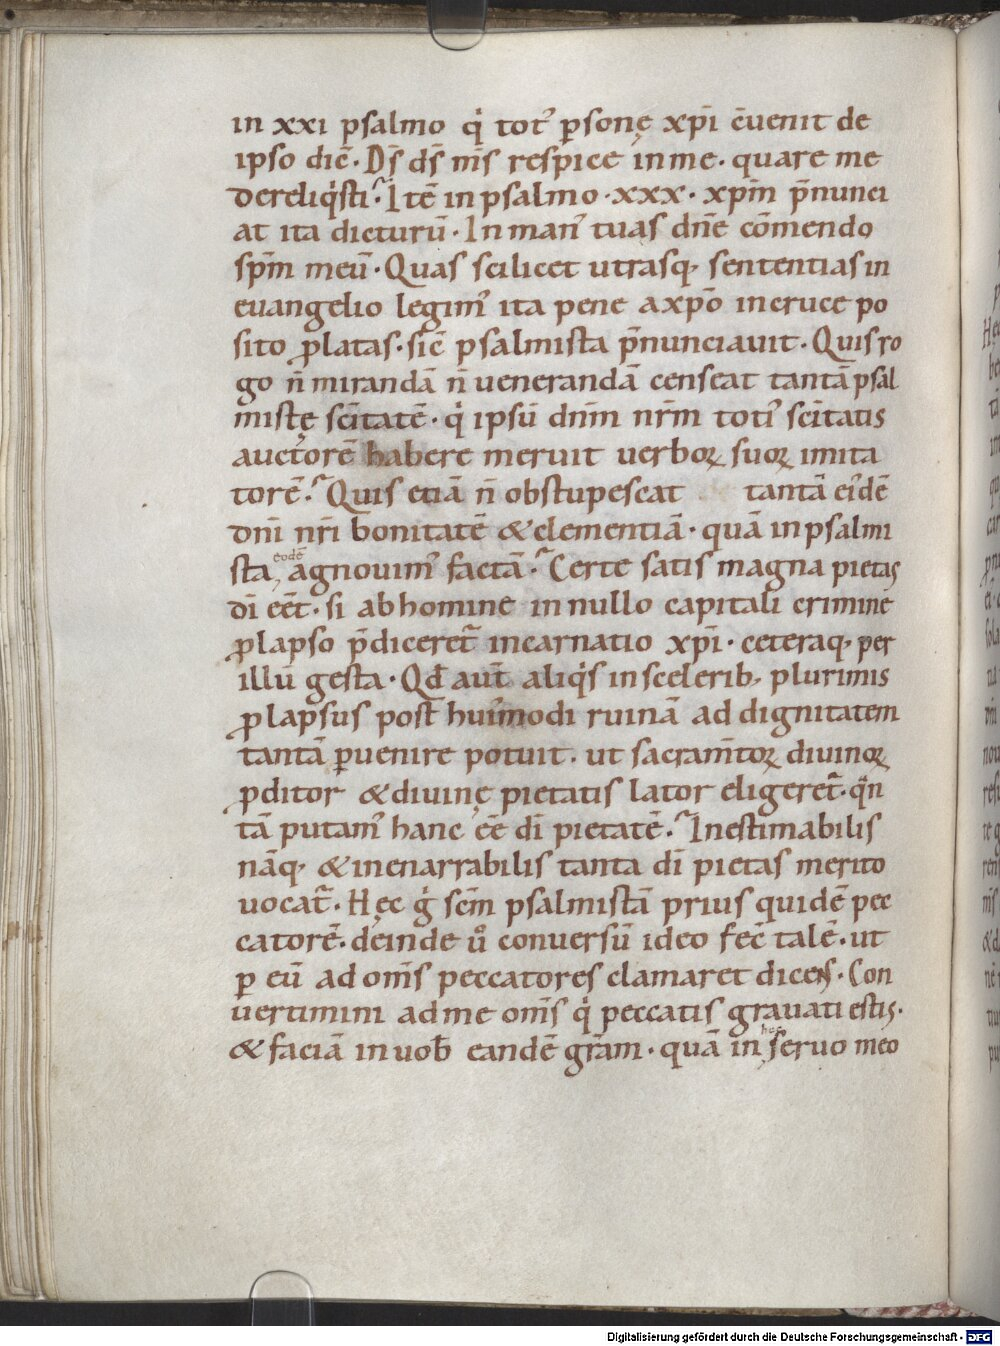 in xxi psalmo qͥ totꝰ ꝑsonę xp̄i c̄uenit de
ipso dic̄ · Ds̄ ds̄ ms̄ respice in me · quare me
dereliqͥsti · Itē in psalmo · xxx · xpm̄ p̄nunci
at ita dicturū · In manꝰ tuas dn̄e cōmendo
spm̄ meū · Quas scilicet utrasq; sententias in
euangelio legimꝰ ita pene a xpō in cruce po
sito ꝓlatas · sic̄ psalmista p̄nunciauit · Quis ro
go n̄ mirandā n̄ uenerandā censeat tantā psal
mistę sc̄itatē · qͥ ipsū dnm̄ nrm̄ totiꝰ sc̄itatis
auctorē habere meruit uerboꝝ suoꝝ imita
torē · Quis etiā n̄ obstupescat tantā eiꝰdē
dnī nrī bonitatē & clementiā · quā in psalmi
sta, eodē agnouimꝰ factā · Certe satis magna pietas
dī eēt · si ab homine in nullo capitali crimine
ꝓlapso p̄diceret᷑ incarnatio xp̄i · ceteraq; per
illū gesta · Qd̄ aut̄ aliqͥs in scelerib; plurimis
ꝓlapsus post huiꝰmodi ruinā ad dignitatem
tantā ꝑuenire potuit · ut sacram̄toꝝ diuinoꝝ
ꝓditor & diuinę pietatis lator eligeret᷑ · qͣn
tā putamꝰ hanc ēe dī pietatē · Inestimabilis
nāq; & inenarrabilis tanta dī pietas merito
uocat᷑ · Hęc gͥ scm̄ psalmistā prius quidē pec
catorē · deinde uͦ conuersū ideo fec̄ talē · ut
ꝑ eū ad om̄s peccatores clamaret dicens · Con
uertimini ad me om̄s qͥ peccatis grauati estis ·
& faciā in uob̄ eandē grām · quā in hoc seruo meo
Digitalisierung gefördert durch die Deutsche Forschungsgemeinschaft - DFG